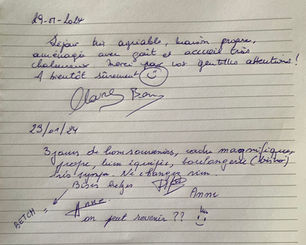 29-01-2024
Séjour très agréable, maison propre,
aménagée avec goût et accueil très
chaleureux. Merci pour vos gentilles attentions !
A bientôt sûrement
23/01/24
3 jours de bonheur, cadre magnifique,
propre, bien équipée, boulangerie
très sympa. Ne changez rien.
Bises belges
Anne
BETCH
on peut revenir ??